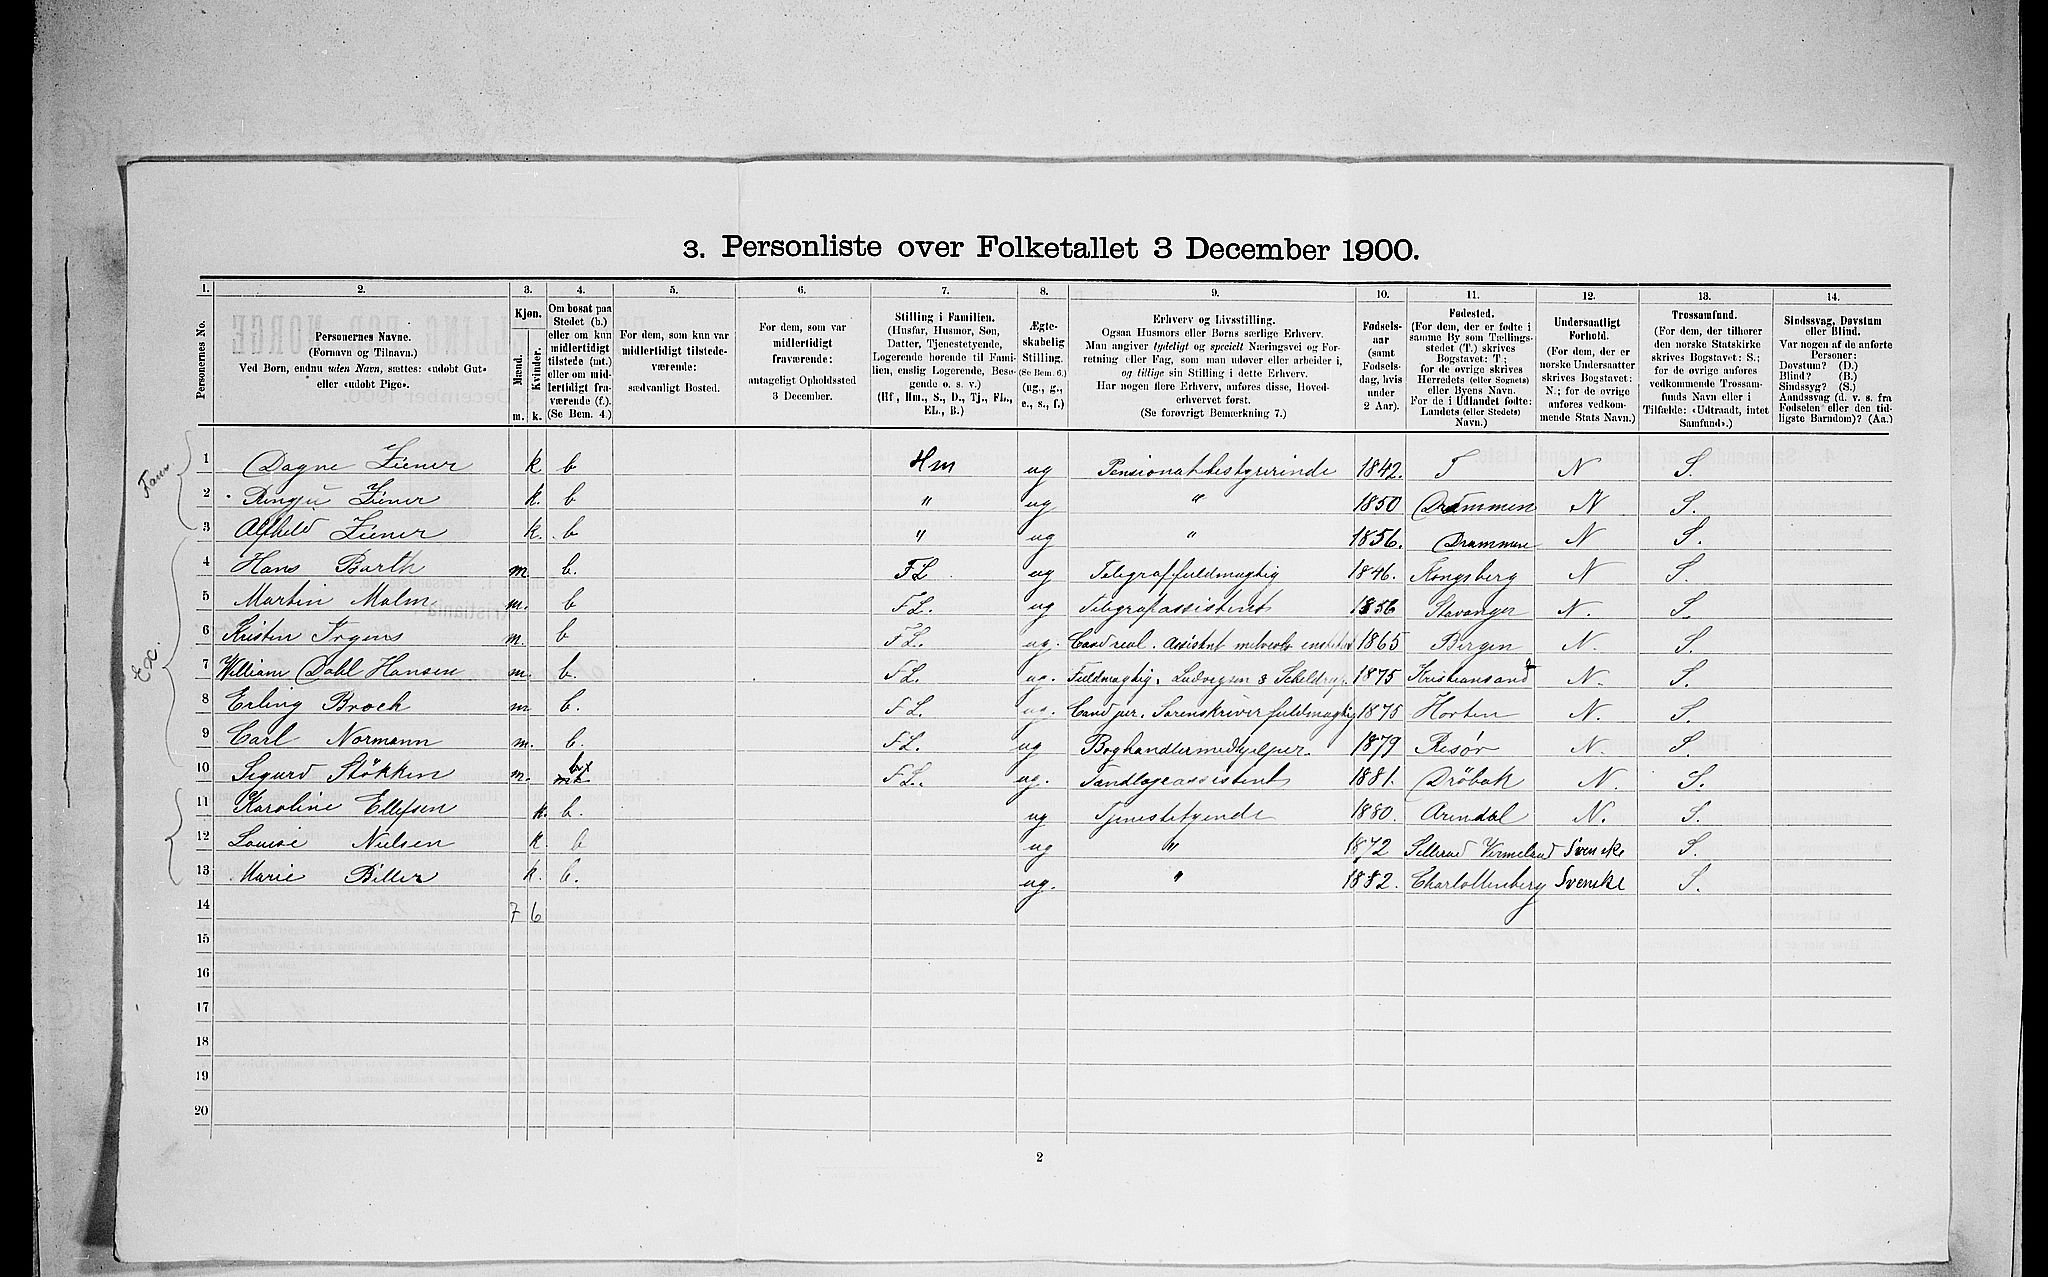 3. Personliste over Folketallet 3 December 1900.
1. 2. 3. 4. 5. 6. 7. 8. 9. 10. 11. 12. 13. 14.
Personernes No.
Personernes Navne.
(Fornavn og Tilnavn.)
Ved Børn, endnu uden Navn, sættes: «udøbt Gut»
eller «udøbt Pige».
Kjøn.
Mænd.
Kvinder.
m. k.
Om bosat paa
Stedet (b.)
eller om kun
midlertidigt
tilstede (mt.)
eller om mid-
lertidigt fra-
værende (f.).
(Se Bem. 4.)
For dem, som kun var
midlertidigt tilstede-
værende:
sædvanligt Bosted.
For dem, som var
midlertidigt
fraværende:
antageligt Opholdssted
3 December.
Stilling i Familien.
(Husfar, Husmor, Søn,
Datter, Tjenestetyende,
Logerende hørende til Fami-
lien, enslig Logerende, Besø-
gende o. s. v.)
(Hf, Hm., S., D., Tj., FL.,
EL., B.)
Ægte-
skabelig
Stilling.
(Se Bem. 6.)
(ug., g.,
e., s., f.)
Erhverv og Livsstilling.
Ogsaa Husmors eller Børns særlige Erhverv.
Man angiver tydeligt og specielt Næringsvei og For-
retning eller Fag, som man udøver eller arbeider i,
og tillige sin Stilling i dette Erhverv.
Har nogen flere Erhverv, anføres disse, Hoved-
erhvervet først.
(Se forøvrigt Bemærkning 7.)
Fødsels-
aar
(samt
Fødsels-
dag, hvis
under
2 Aar).
Fødested.
(For dem, der er fødte i
samme By som Tællings-
stedet (T.) skrives
Bogstavet: T;
for de øvrige skrives
Herredets (eller Sognets)
eller Byens Navn.
For de i Udlandet fødte:
Landets (eller Stedets)
Navn.)
Undersaatligt
Forhold.
(For dem, der er
norske Undersaatter
skrives Bogstavet:
N.; for de øvrige
anføres vedkom-
mende Stats Navn.)
Trossamfund.
(For dem, der tilhører
den norske Statskirke
skrives Bogstavet: S.;
for de øvrige anføres
vedkommende Trossam-
funds Navn eller i
Tilfælde: «Udtraadt, intet
Samfund».)
Sindssvag, Døvstum
eller Blind.
Var nogen af de anførte
Personer:
Døvstum? (D.)
Blind? (B.)
Sindssyg? (S.)
Aandssvag (d. v. s. fra
Fødselen eller den tid-
ligste Barndom)? (Aa.)
1 Dagne Ziener k b Hm ug Pensionatbestyrerinde 1842. T N S.
2 Ziener k. b " ug " 1850 Drammen N S.
3 Alfhild Ziener k. b " ug " 1856. Drammen N S.
4 Hans Barth m. b. FL ug Telegraffuldmægtig 1846. Kongsberg N S.
5 Martin Malm m. b FL. ug Telegrafassistent 1856 Stavanger N. S.
6 Kristen Irgens m. b FL. ug. Cand real. Assistent 1865 Bergen N. S.
7 William Dahl Hansen m. b. FL. ug. Fuldmægtig. Ludvigsen & Scheldrup. 1875 Kristiansand N. S.
8 Erling Brock m b. FL. ug. Cand jur. Sorenskriverfuldmægtig 1875 Horten N. S.
9 Carl Normann m. b. FL. ug Boghandlermedhjelper. 1879 Risør N. S.
10 Sigurd Stökken m. b mt FL. ug. Tandlægeassistent 1881. Dröbak N. S.
11 Karoline Ellefsen k. b. ug Tjenestetyende 1880. Arendal N. S.
12 Louise Nielsen k. b ug " 1872 Sillerud Vermeland Svenske S.
13 Marie Biller k. b. ug. " 1882. Charlottenberg Svenske S.
14 7 6
15
16
17
18
19
20
2